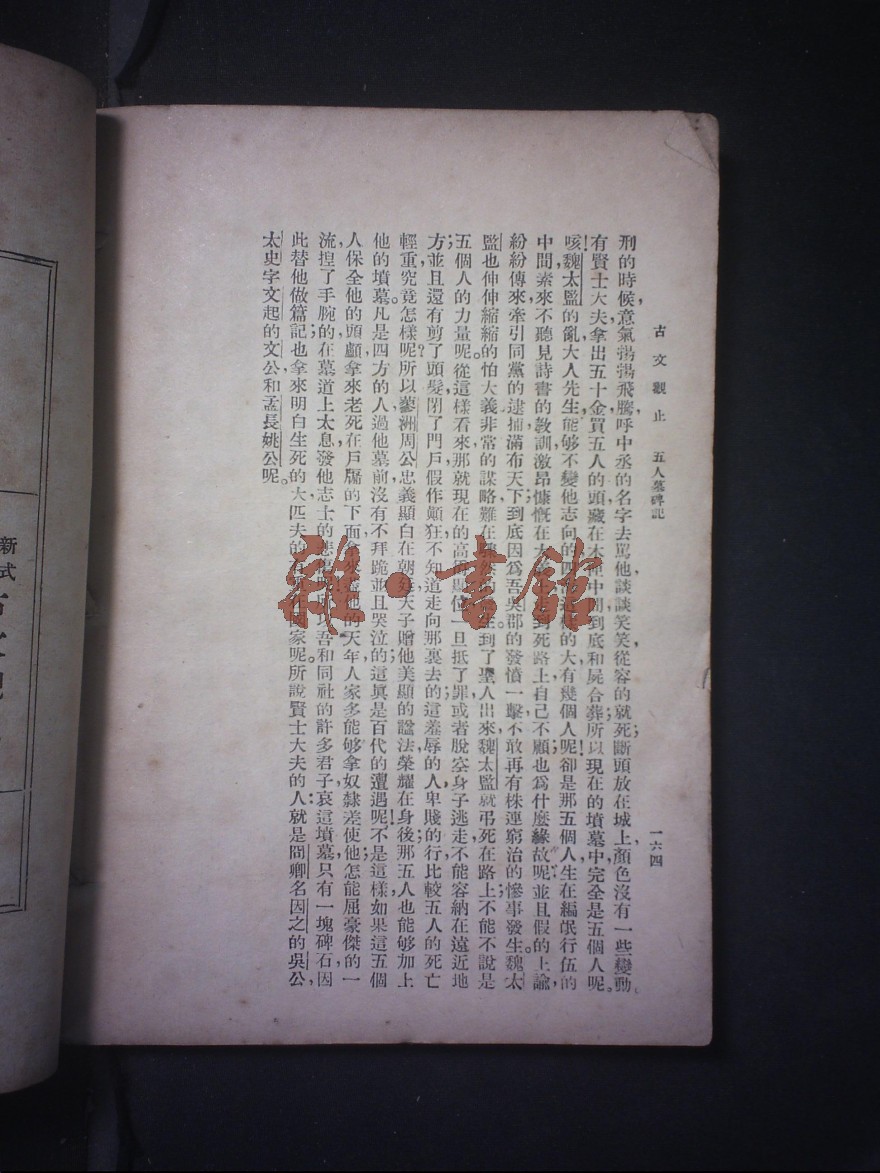 古文觀止　五人墓碑記　一六四
刑的時候，意氣揚揚飛騰，呼中丞的名字去罵他，談談笑笑，從容的就死；斷頭放在城上，顏色沒有一些變動。
有賢士大夫拿出五十金，買五人的頭，藏在木匣中間，到底和屍合葬；所以現在的墳墓中，完全是五個人呢。
咳！魏太監的亂，大人先生，能够不變他志向的，四海這樣的大，有幾個人呢？卻是那五個人，生在編氓行伍的
中間，素來不聽見詩書的教訓，激昂慷慨在大 到死路上自己不顧，也爲什麽緣故呢？並且假的上諭，
紛紛傳來，牽引同黨的逮捕，滿布天下，到底因爲吾吳郡的發憤一擊，不敢再有株連窮治的慘事發生。魏太
監也伸伸縮縮的怕大義，非常的謀略，難在 然的 生，到了聖人出來，魏太監就弔死在路上，不能不說是
五個人的力量呢。從這樣看來，那就現在的高爵顯位，一旦抵了罪，或者脫空身子逃走，不能容納在遠近地
方；並且還有剪了頭髮，閉了門戶，假作顚狂，不知道走向那裏去的，這羞辱的人，卑賤的行，比較五人的死亡，
輕重究竟怎樣呢？所以蓼洲周公，忠義顯白在朝廷，天子贈他美顯的諡法，榮耀在身後；那五人也能够加上
他的墳墓。凡是四方的人，過他墓前，沒有不拜跪並且哭泣的，這眞是百代的遭遇呢！不是這樣，如果這五個
人保全他的頭顱，拿來老死在戶牖的下面，拿來盡他的天年，人家多能够拿奴隸差使他，怎能屈豪傑的一
流，揑了手腕的，在墓道上太息，發他志士的悲 呢？所以吾和同社的許多君子，哀這墳墓，只有一塊碑石，因
此替他做篇記；也拿來明白生死的大，匹夫的有 在國家呢。所說賢士大夫的人，就是冏卿名因之的吳公，
太史字文起的文公，和孟長姚公呢。
新式
雜·書館